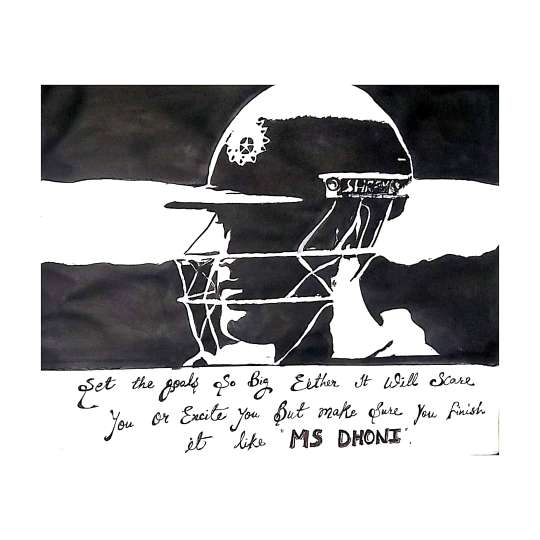 SHREYAS
Set the goals So Big Either It Will Scare
You Or Excite You But make Sure You Finish
it like "MS DHONI".